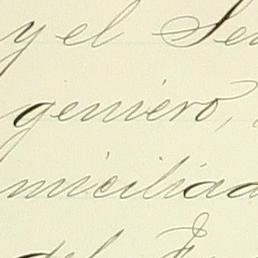 y el Se
geniero,
miciliad
del